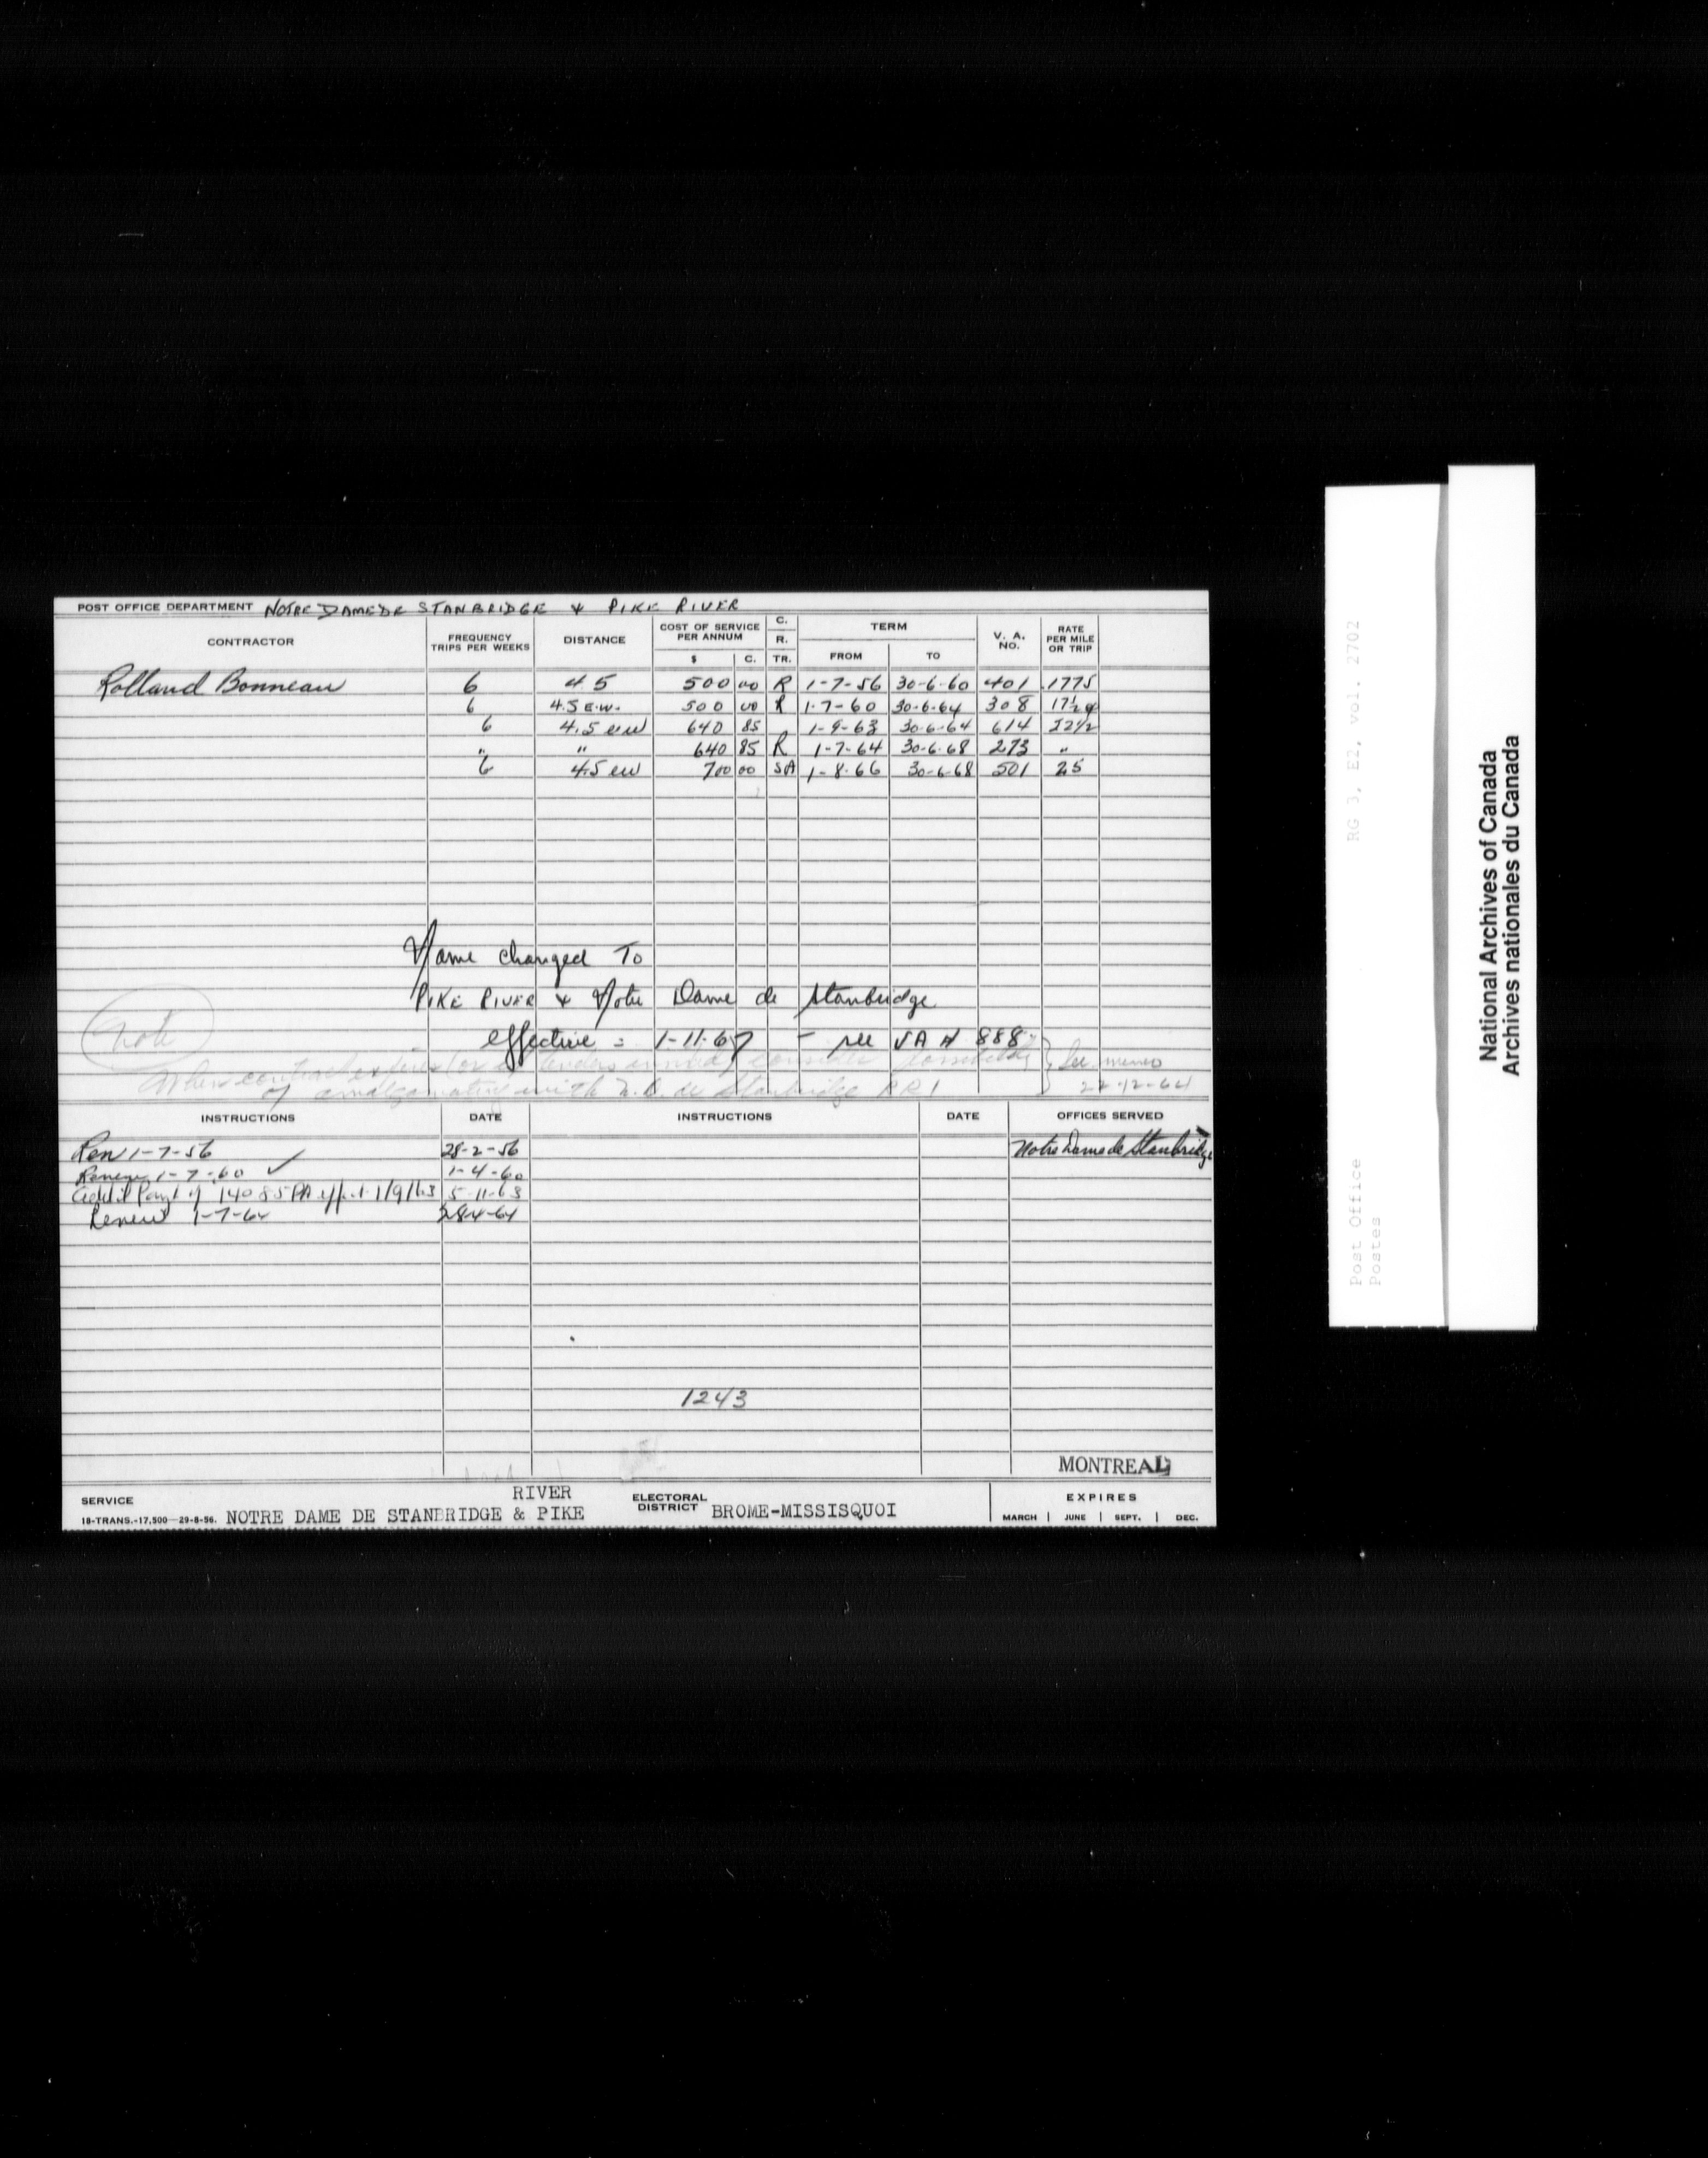 POST OFFICE DEPARTMENT NOTRE DAME DE STANBRIDGE & PIKE RIVER
CONTRACTOR FREQUENCY TRIPS PER WEEKS DISTANCE COST OF SERVICE PER ANNUM $ C. C. R. TR. TERM FROM TO V. A. NO. RATE PER MILE OR TRIP
Rolland Bonneau 6 4 5 500 00 R 1-7-56 30-6-60 401 .1775
6 4.5 e.w. 500 00 R 1-7-60 30-6-64 308 17½¢
6 4.5 ew 640 85 1-9-63 30-6-64 614 22½
" " 640 85 R 1-7-64 30-6-68 273 "
6 4.5 ew 700 00 SA 1-8-66 30-6-68 501 25
Name changed To
PIKE RIVER & Notre Dame de Stanbridge
effective = 1-11-67 - see VA # 888
Note
When contract expires or tenders invited consider possibility
of amalgamating with N.D. de Stanbridge RR1
See memo
22-12-64
INSTRUCTIONS DATE INSTRUCTIONS DATE OFFICES SERVED
Ren 1-7-56 28-2-56 Notre Dame de Stanbridge
Renew 1-7-60 ✓ 1-4-60
Addit'l Payt of 140 85 PA effect 1/9/63 5-11-63
Renew 1-7-64 28-4-64
1243
MONTREAL
SERVICE NOTRE DAME DE STANBRIDGE & PIKE RIVER
ELECTORAL DISTRICT BROME-MISSISQUOI
EXPIRES
18-TRANS.-17,500-29-8-56.
MARCH | JUNE | SEPT. | DEC.
RG 3, E2, vol. 2702
Post Office
Postes
National Archives of Canada
Archives nationales du Canada